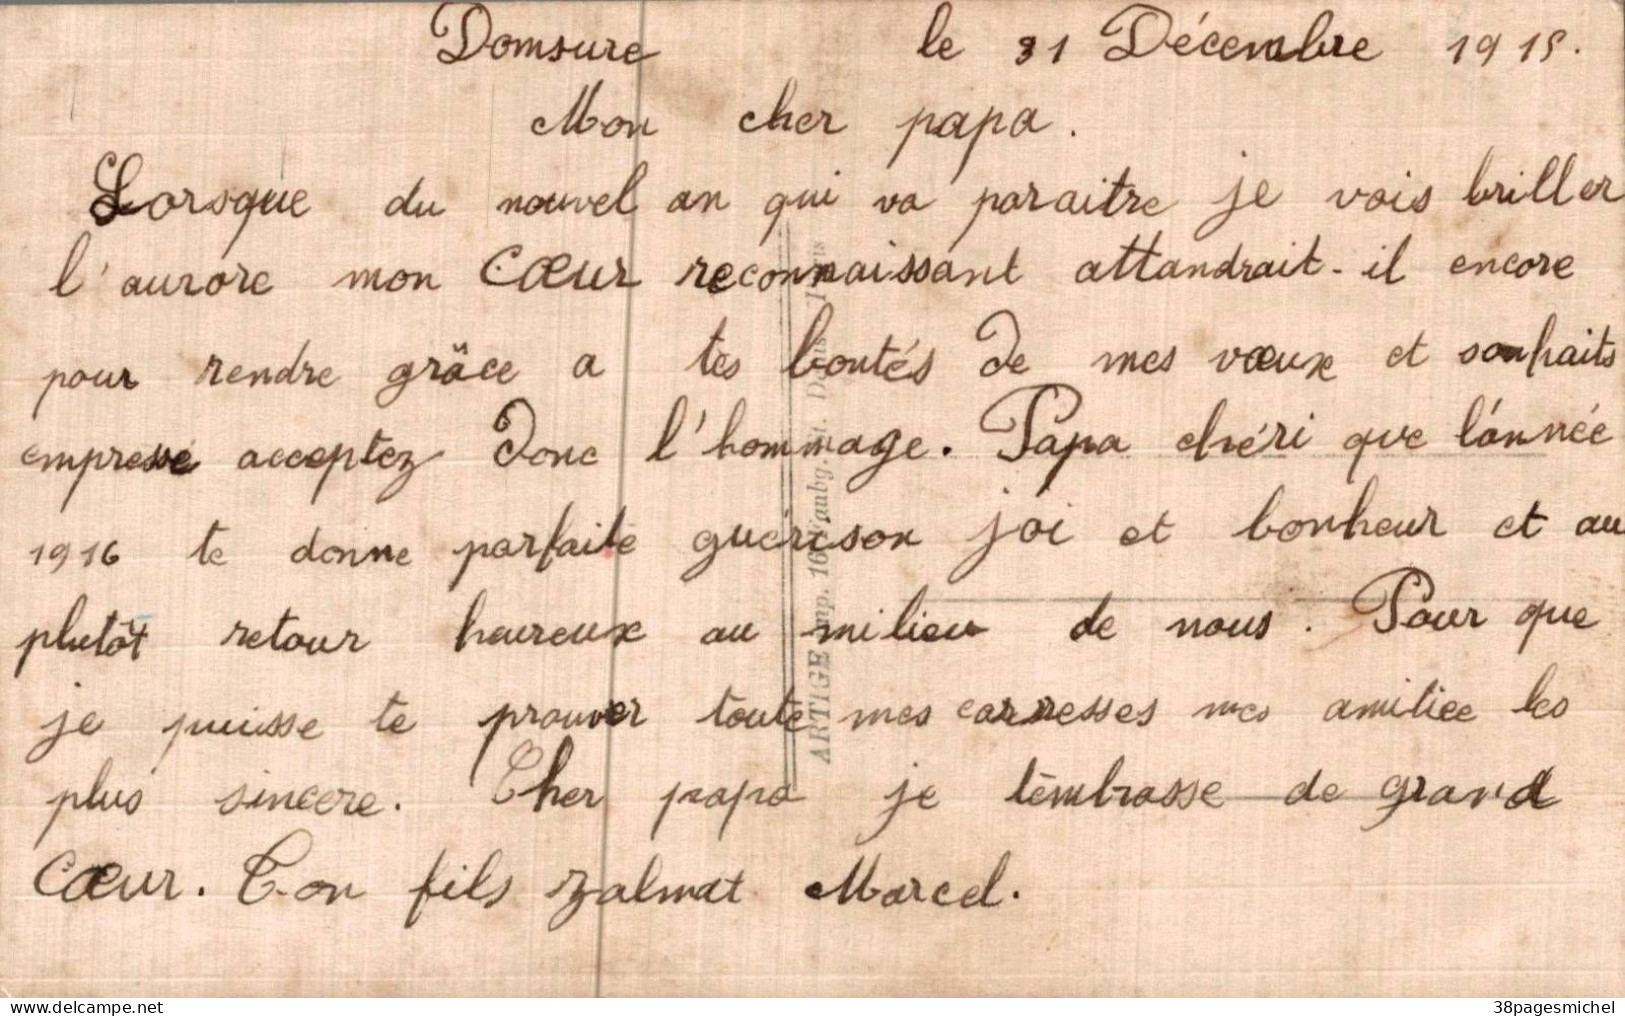 Domsure le 31 Décembre 1915.
Mon cher papa.
Lorsque du nouvel an qui va paraitre je vois briller
l'aurore mon Cœur reconnaissant attandrait-il encore
pour rendre grâce a tes bontés de mes vœux et souhaits
empressé acceptez donc l'hommage. Papa chéri que l'année
1916 te donne parfaite guérison joi et bonheur et au
plutôt retour heureux au milieu de nous. Pour que
je puisse te prouver toute mes carresses mes amitiee les
plus sincere. Cher papa je t'embrasse de grand
Cœur. Ton fils Zalmat Marcel.
ARTIGE
delcampe.net
38pagesmichel